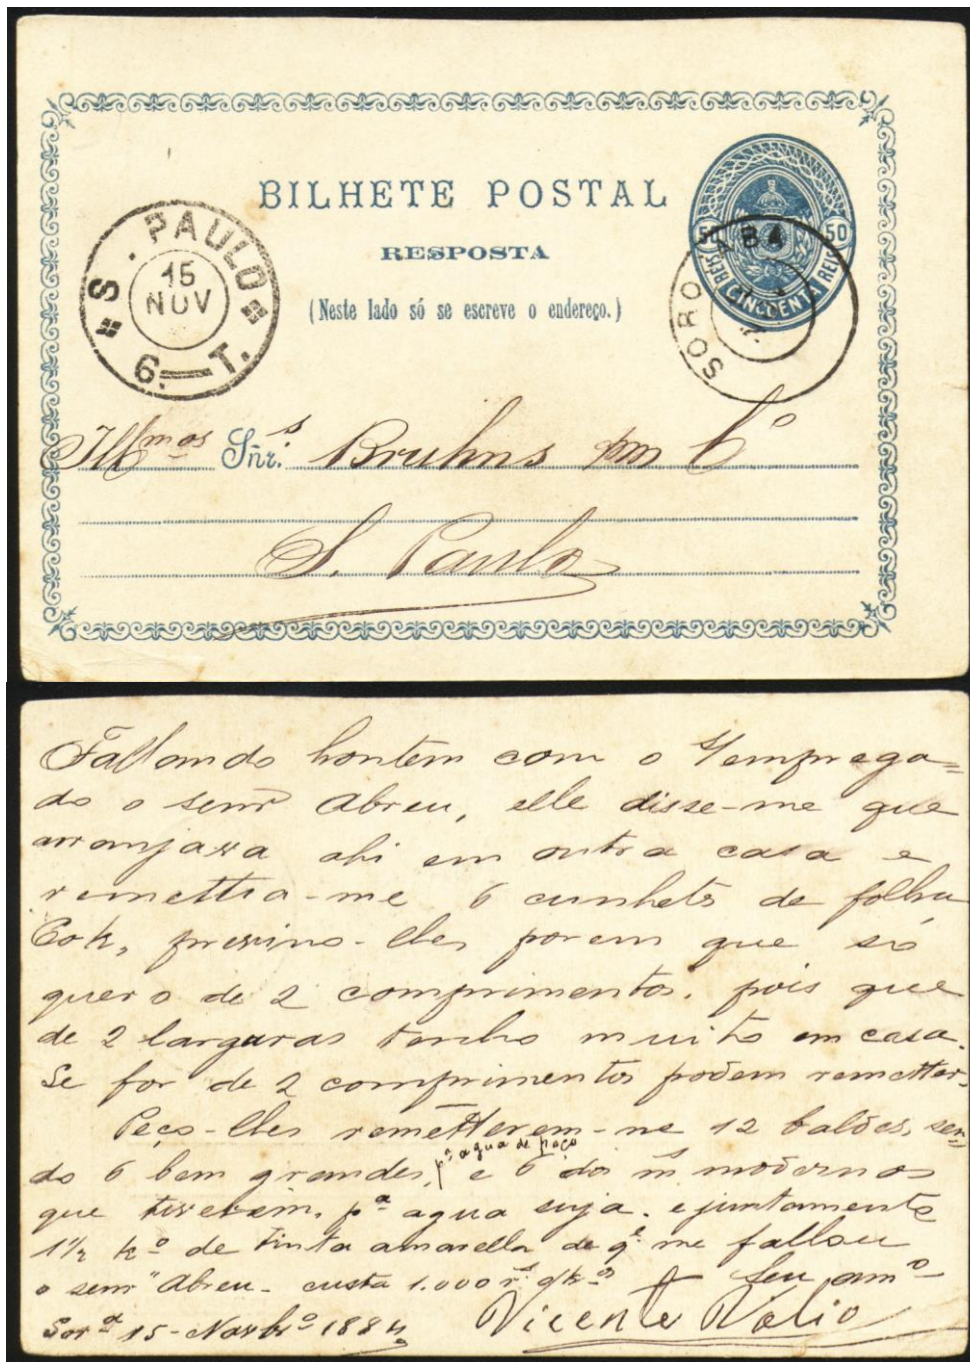 BILHETE POSTAL
RESPOSTA
(Neste lado só se escreve o endereço.)
S. PAULO
15
NOV
6.—T.
50 50
CINCOENTA REIS
SOROCABA
Illmos Sñr.s Bruhns Co
S. Paulo
Fallando hontem com o V emprega=
do o senr Abreu, elle disse-me que
arranjava ahi em outra casa e
remettia-me 6 cunhets de folha
Cok, previno-lhes porem que só
quero de 2 comprimentos, pois que
de 2 larguras tenho muito em casa.
Se for de 2 comprimentos podem remetter.
Peço-lhes remetterem-me 12 baldes, sen-
do 6 bem grandes, pa agua de poço e 6 dos ms modernos
que tiverem, pa agua suja. e juntamente
1 1/2 ko de tinta amarella de q.e me fallou
o senr Abreu. custa 1.000 rs
Seu amo
Sora 15-Novbro 1884
Vicente Valio